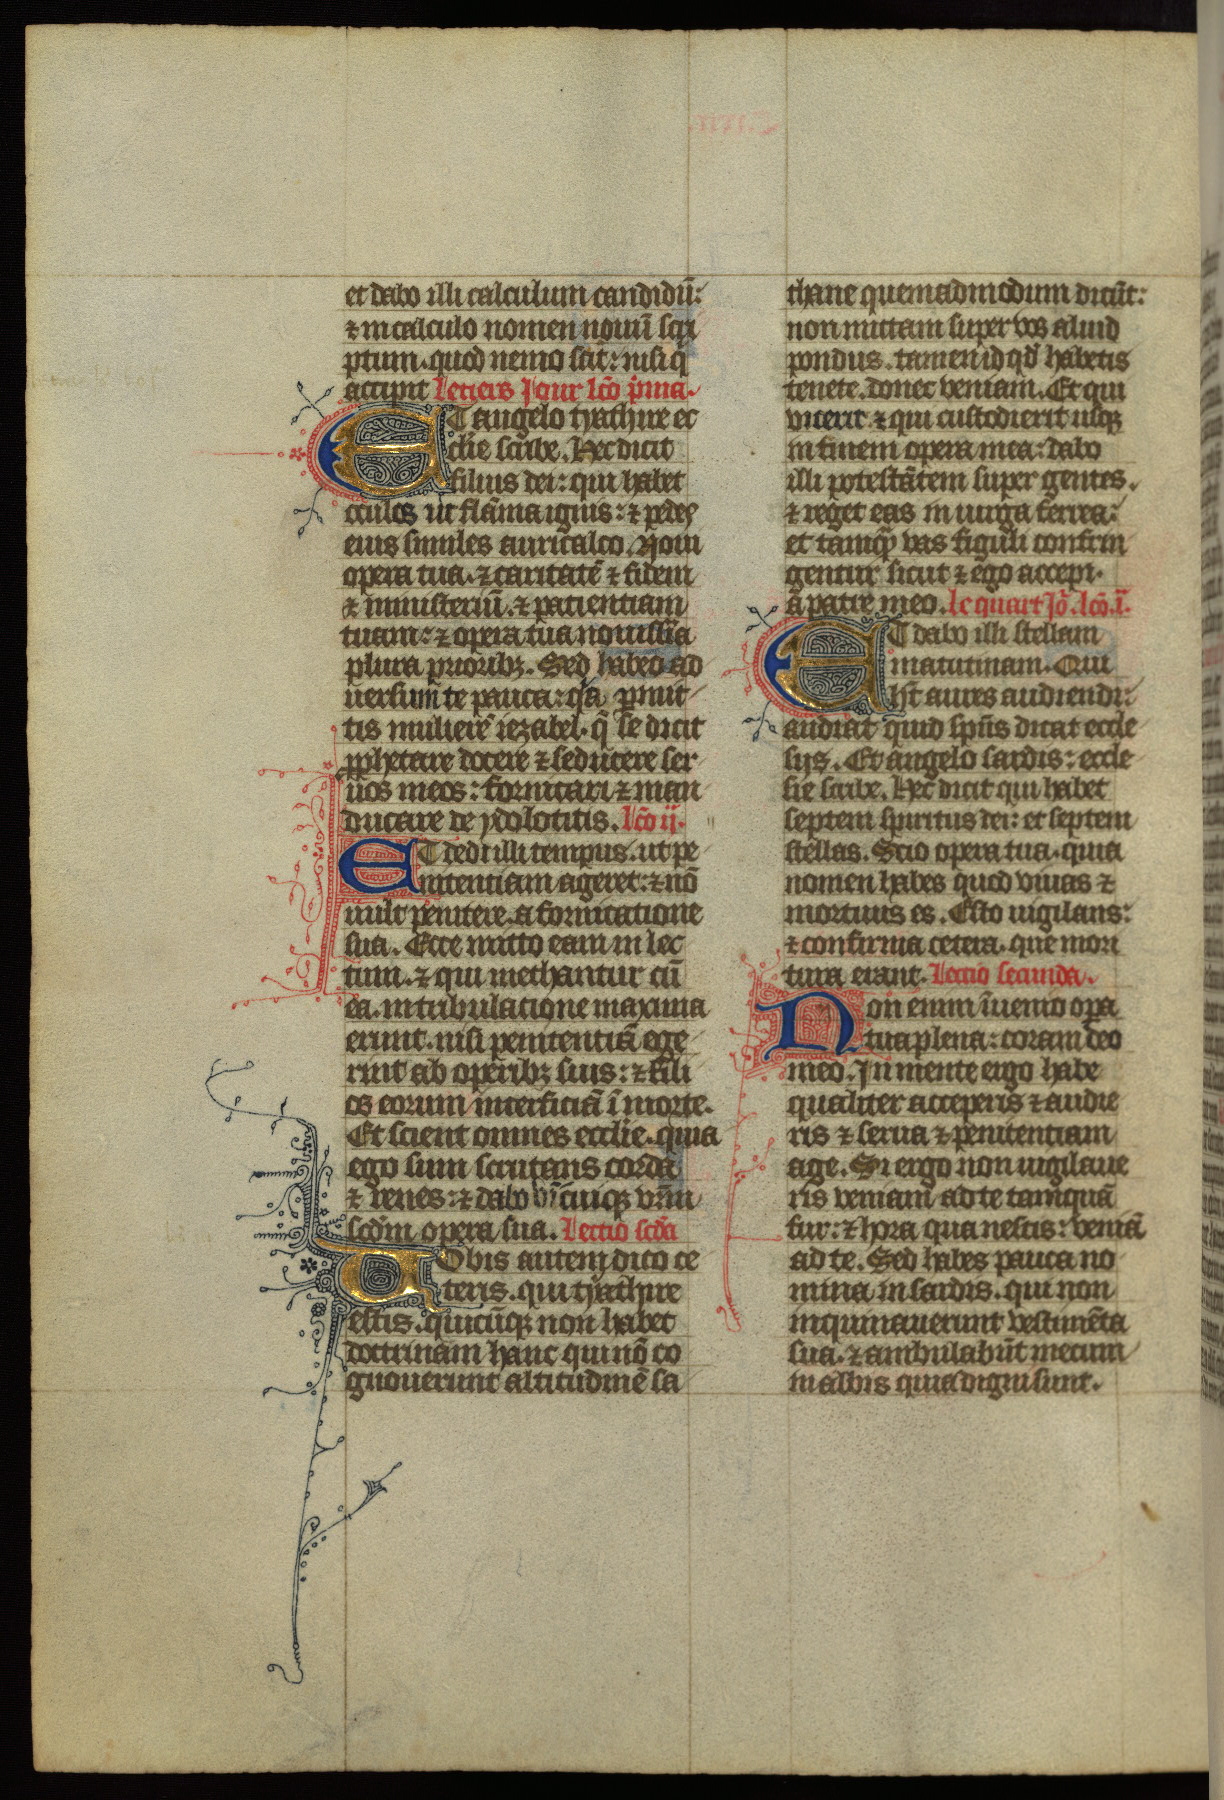 et dabo illi calculum candidũ:
⁊ in calculo nomen nouũ scͥ
ptum. quod nemo scit: nisi q̃
accipit Letiers Jour lc̃o p̃ma.
ET angelo tyathire ec
clie scͥbe. Hec dicit
filius dei: qui habet
oculos ut flãma ignis: ⁊ pedes
eius similes auricalco. Noui
opera tua. ⁊ caritatẽ ⁊ fidem
⁊ ministeriũ. ⁊ patientiam
tuam: ⁊ opera tua nouissĩa
plura prioribꝫ. Sed habeo ad
uersum te pauca: qͥa ꝑmit
tis muliere᷒ iezabel. q̃ se dicit
ꝓphetare docere ⁊ seducere ser
uos meos: fornicari ⁊ man
ducare de ydolotitis. lc̃o ij.
ET dedi illi tempus. ut pe
nitentiam ageret: ⁊ nõ
uult penitere. a fornicatione
sua. Ecce mitto eam in lec
tum. ⁊ qui mechantur cũ
ea. in tribulatione maxima
erunt. nisi penitentiã ege
rint ab operibꝫ suis: ⁊ fili
os eorum interficiã ĩ morte.
Et scient omnes ecclie. quia
ego sum scrutans corda
⁊ renes: ⁊ dabo vnicuiqꝫ vr̃m
scd̃m opera sua. Lectio scd̃a
Uobis autem dico ce
teris. qui tyathire
estis. quicũqꝫ non habet
doctrinam hanc qui nõ co
gnouerunt altitudinẽ sa
thane quemadmodum dicũt:
non mittam super vos aliud
pondus. tamen id qd̃ habetis
tenete. donec veniam. Et qui
vicerit ⁊ qui custodierit usqꝫ
in finem opera mea: dabo
illi potestãtem super gentes.
⁊ reget eas in uirga ferrea:
et tamqͣ vas figuli confrin
gentur sicut ⁊ ego accepi.
a patre meo. le quart Jo᷑. lc̃o. i.
ET dabo illi stellam
matutinam. Qui
hãt aures audiendi:
audiat quid spũs dicat eccle
sijs. Et angelo sardis: eccle
sie scribe. Hec dicit qui habet
septem spiritus dei: et septem
stellas. Scio opera tua. quia
nomen habes quod viuas ⁊
mortuus es. Esto uigilans:
⁊ confirma cetera. que mori
tura erant. Lectio secunda.
Non enim ĩuenio opͣa
tua plena: coram deo
meo. In mente ergo habe
qualiter acceperis ⁊ audie
ris ⁊ serua ⁊ penitentiam
age. Si ergo non uigilaue
ris veniam ad te tamquã
fur: ⁊ hora qua nescis: veniã
ad te. Sed habes pauca no
mina in sardis. qui non
inquinauerunt vestimẽta
sua. ⁊ ambulabũt mecum
in albis quia digni sunt.